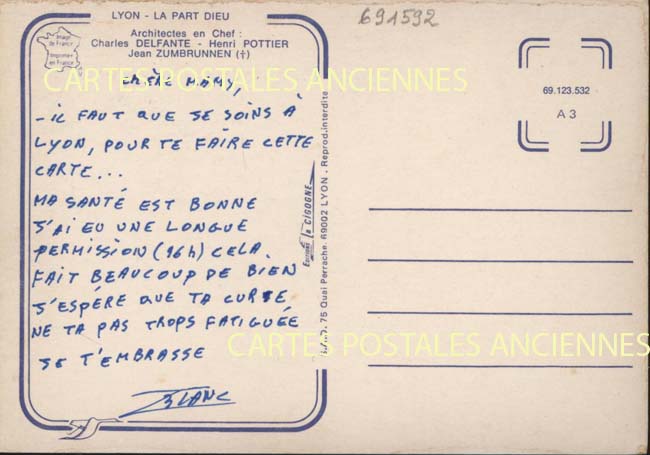 LYON - LA PART DIEU
691592
Architectes en Chef :
Charles DELFANTE - Henri POTTIER
Jean ZUMBRUNNEN (†)
Image
de France
Imprimée
en France
CARTES POSTALES ANCIENNES
CHÈRE MAMY,
- IL FAUT QUE JE SOIS À
LYON, POUR TE FAIRE CETTE
CARTE...
MA SANTÉ EST BONNE
J'AI EU UNE LONGUE
PERMISSION (96h) CELA.
FAIT BEAUCOUP DE BIEN
J'ESPÈRE QUE TA CURE
NE TA PAS TROPS FATIGUÉE
JE T'EMBRASSE
BLANC
Editions La CIGOGNE
75 Quai Perrache 69002 LYON . Reprod.interdite
69.123.532
A 3
CARTES POSTALES ANCIENNES